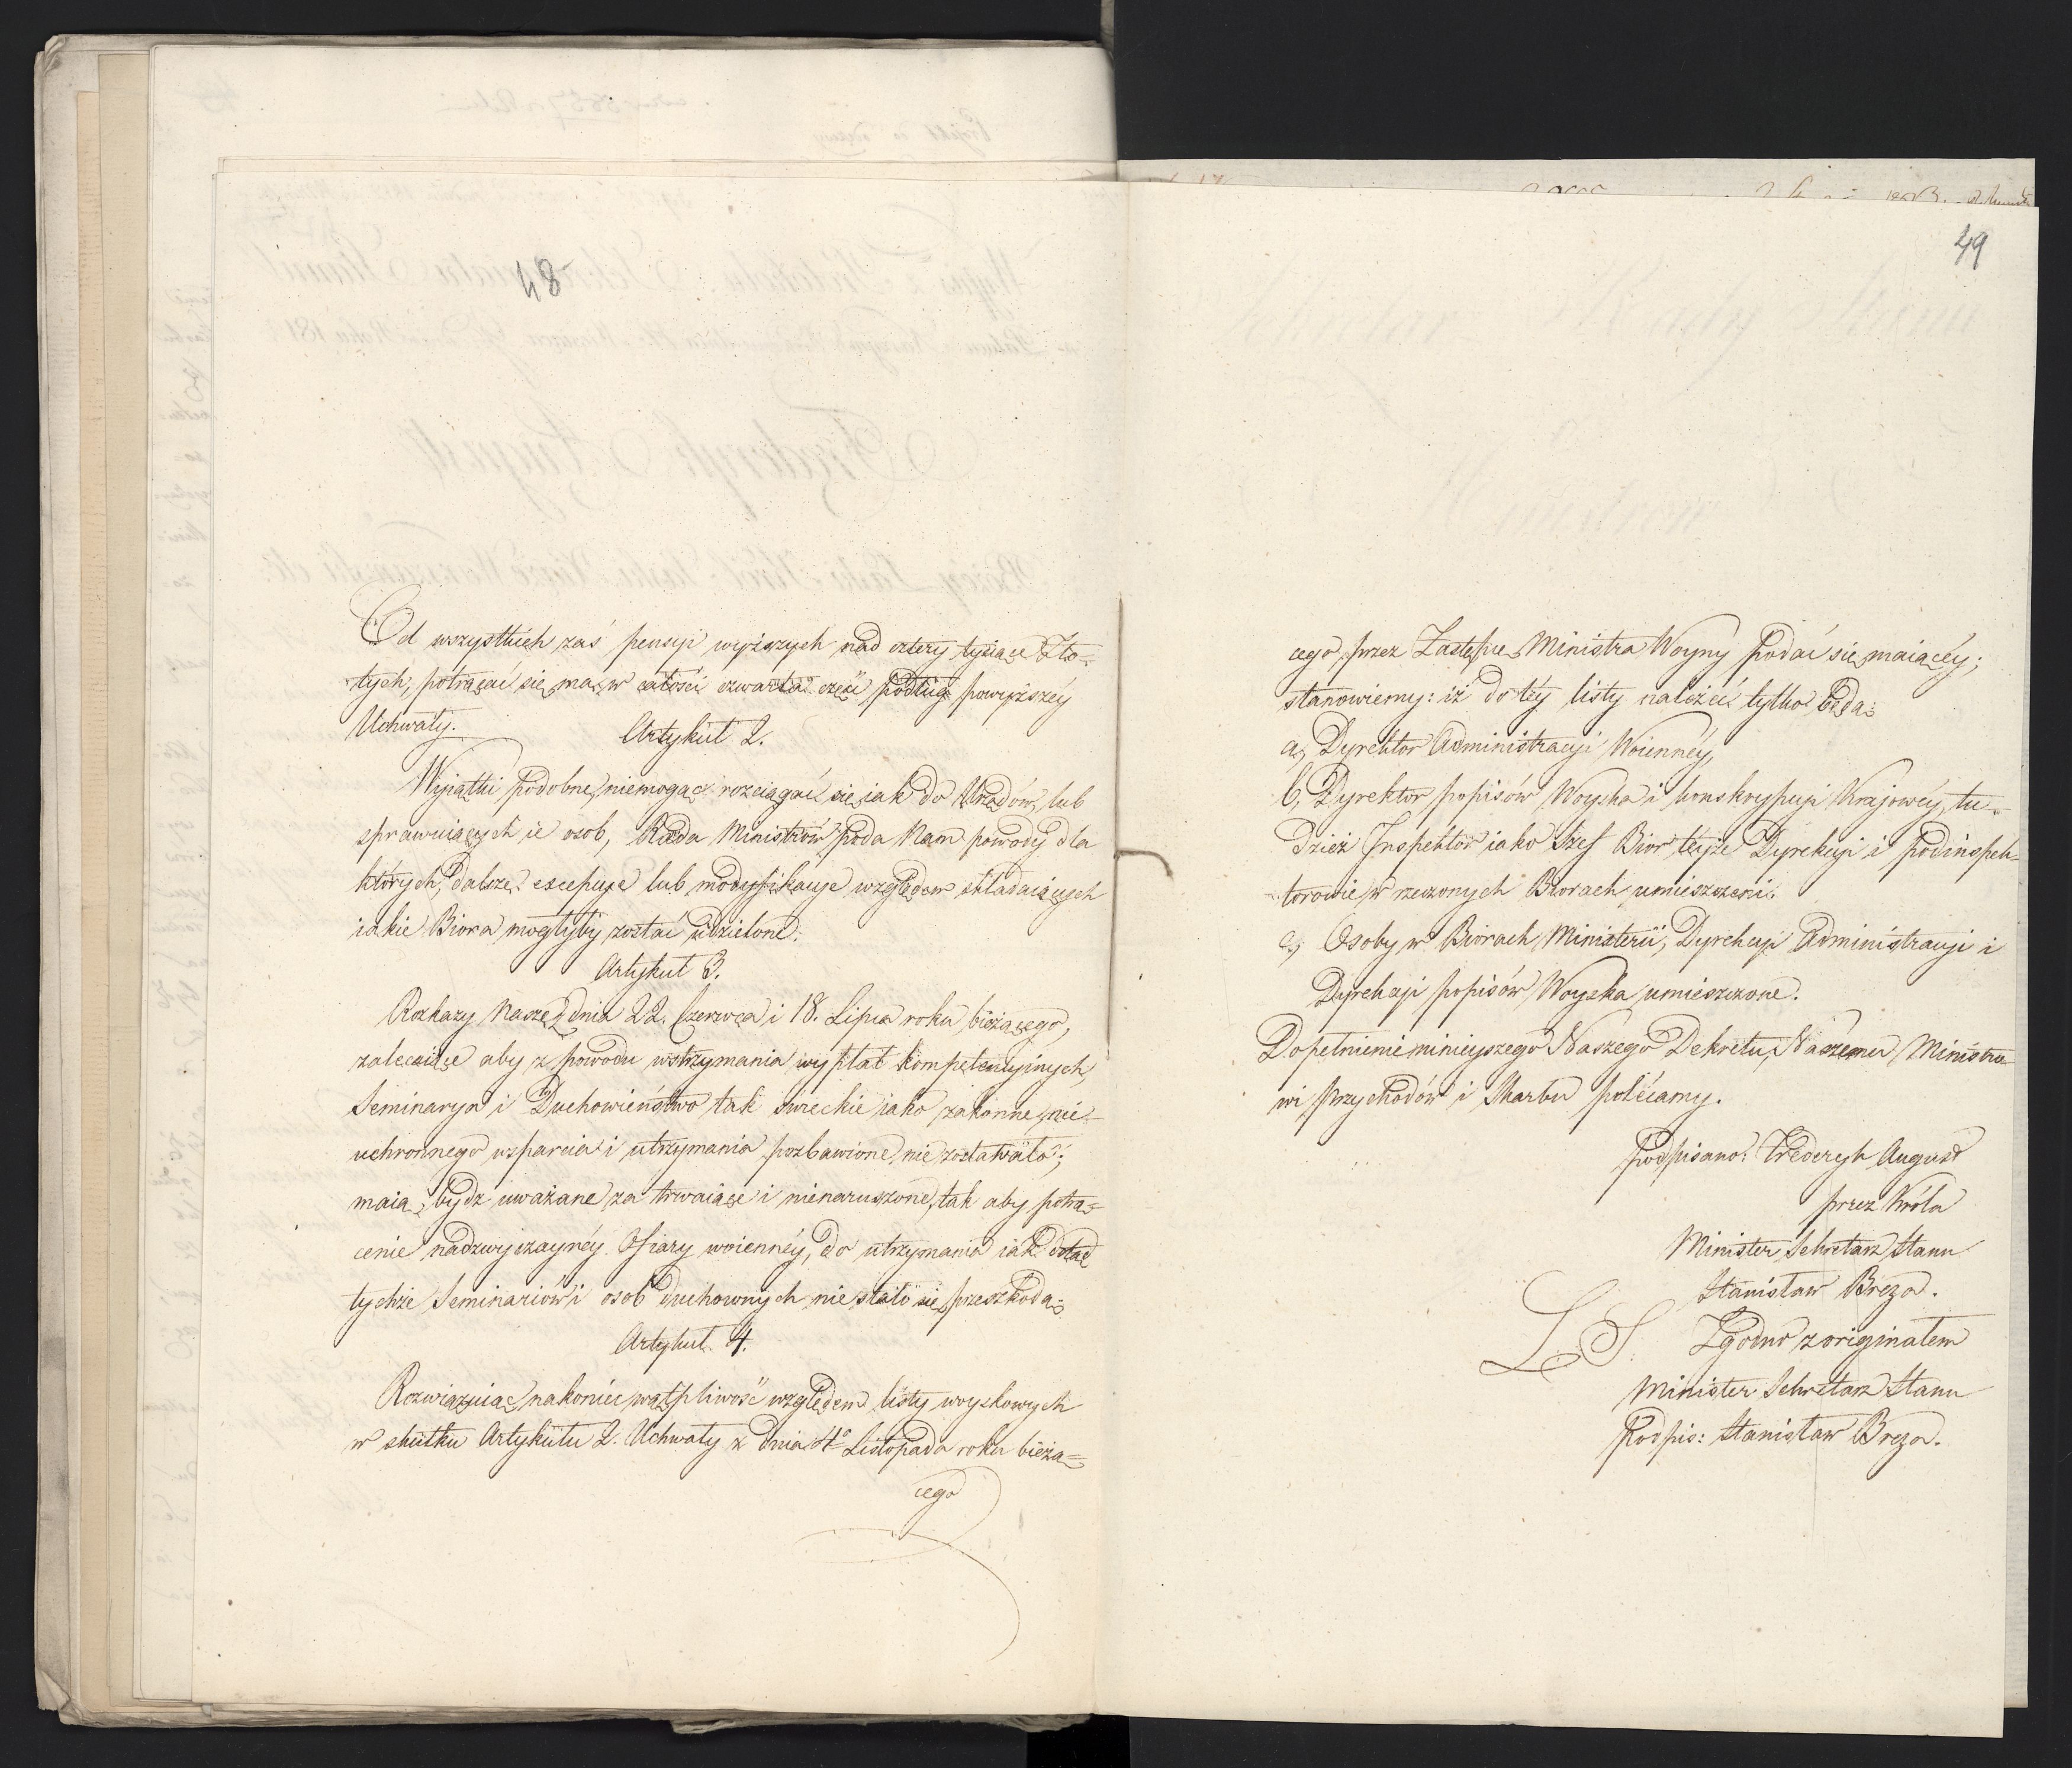 48
Od wszystkich zaś pensyi wyższych nad cztery tysiące Zło-
tych, potrącać się ma w całości czwarta część podług powyższey
Uchwały.
Artykuł 2.
Wyiątki podobne, niemogąc rozciągać się iak do Urzędów, lub
sprawuiących ie osob, Rada Ministrów poda Nam powody dla
których, dalsze excepcye lub modyfikacye względem składaiących
iakie Biora mogłyby zostać udzielone.
Artykuł 3.
Rozkazy Nasze z dnia 22. Czerwca i 18. Lipca roku bieżącego,
zalecaiące aby z powodu wstrzymania wypłat kompetencyinych,
Seminarya i Duchowieństwo tak swieckie iako zakonne, nie-
uchronnego wsparcia i utrzymania pozbawione nie zostawało;
maią bydz uważane za trwaiące i nienaruszone, tak aby potrą-
cenie nadzwyczaynéy Ofiary woiennéy, do utrzymania iak dotąd
tychże Seminariów i osob duchownych nie stało się przeszkodą.
Artykuł 4.
Rozwiązuiąc nakoniec wątpliwość względem listy woyskowych
w skutku Artykułu 2. Uchwały z dnia 4° Listopada roku bieżą-
cego
49
cego, przez Zastępcę Ministra Woyny podać się maiącéy;
stanowiemy: iż do téy listy należeć tylko będą:
a, Dyrektor Administracyi Woiennéy,
b, Dyrektor popisów Woyska i konskrypcyi Krajowéy, tu-
dzież Inspektor iako Szef Bior téyże Dyrekcyi i podinspek-
torowie w rzeczonych Biorach umieszczeni.
c, Osoby w Biorach Ministerii, Dyrekcyi Administracyi i
Dyrekcyi popisów Woyska umieszczone.
Dopełnienie ninieyszego Naszego Dekretu, Naszemu Ministro-
wi Przychodów i Skarbu polécamy.
podpisano: Frederyk August
przez Króla
Minister Sekretarz Stanu
Stanisław Breza.
L. S. Zgodno z originałem
Minister Sekretarz Stanu
Podpis: Stanisław Breza.